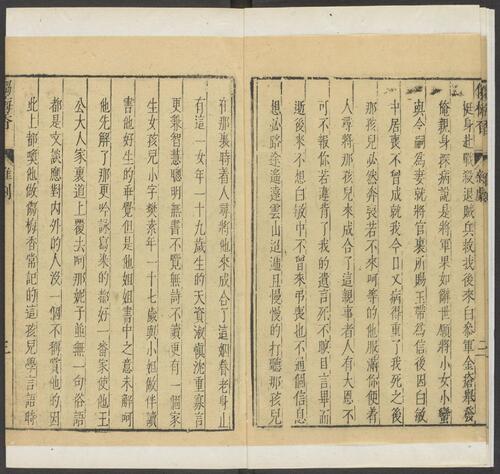 㑳梅香
雜劇
二
挺身赴戰殺退賊兵救我後來白參軍金瘡舉發
俺親身探病說是將軍果如辭世願將小女小蠻
與令嗣爲妻就將官裏所賜玉帶爲信後因白敏
中居喪不曾成就我今日又病得重了我死之後
那孩兒必然奔喪若不來呵等的他服滿你使着
人尋將那孩兒來成合了這親事者人有大恩不
可不報你若違背了我的遺言死不瞑目言畢而
逝後來不想白敏中不曾來弔喪也不通個信息
想必路途遙遠雲山迢遞且慢慢的打聽那孩兒
在那裏時着人尋將他來成合了這姻眷老身止
有這一女年一十九歲生的天資淑愼沈重寡言
更兼智慧聰明無書不覽無詩不讀更有一個家
生女孩兒小字樊素年一十七歲與小姐做伴讀
書他好生的乖覺但是他姐姐書中之意未解呵
他先解了那更吟詠寫染的都好一番家使他王
公大人家裏道上覆去呵那妮子並無一句俗語
都是文談應對內外的人沒一個不稱賞他的因
此上都喚他做㑳梅香常記的這孩兒學言語時
㑳梅香
雜劇
三